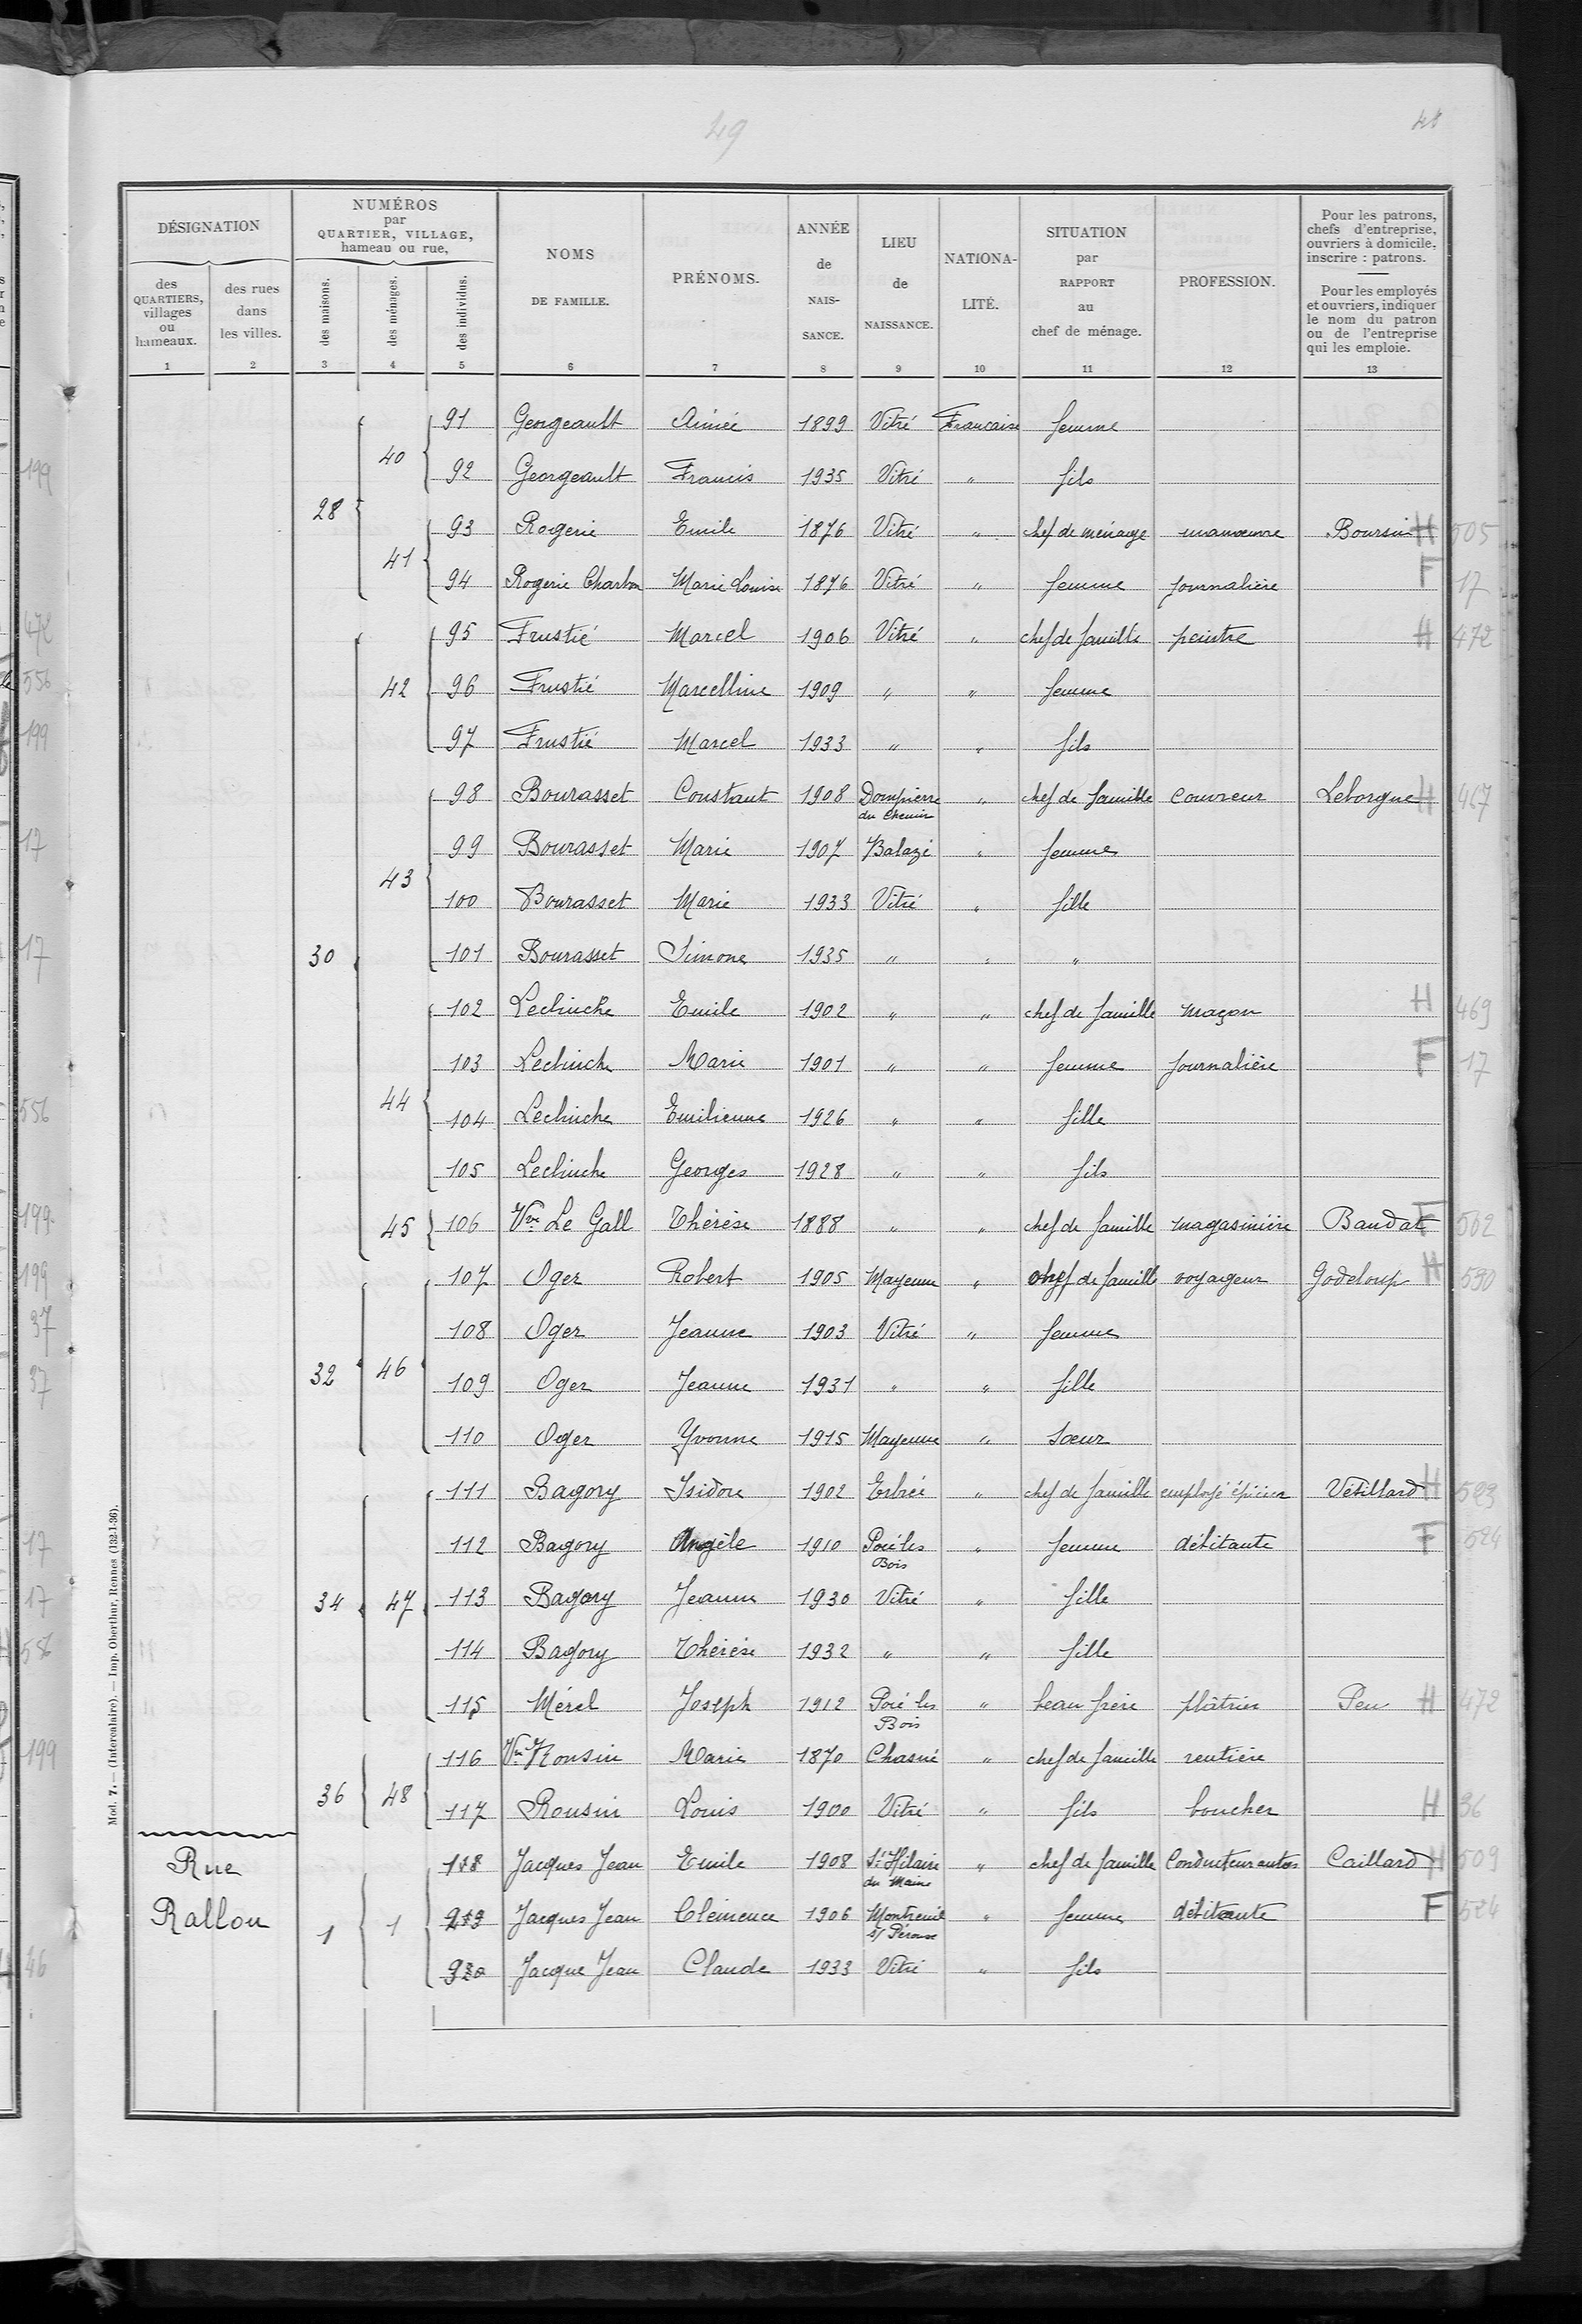 49
48
DÉSIGNATION
des QUARTIERS, villages ou hameaux.
des rues dans les villes.
NUMÉROS par QUARTIER, VILLAGE, hameau ou rue,
des maisons.
des ménages.
des individus.
NOMS DE FAMILLE.
PRÉNOMS.
ANNÉE de NAIS- SANCE.
LIEU de NAISSANCE.
NATIONA- LITÉ.
SITUATION par RAPPORT au chef de ménage.
PROFESSION.
Pour les patrons, chefs d'entreprise, ouvriers à domicile, inscrire : patrons.
Pour les employés et ouvriers, indiquer le nom du patron ou de l'entreprise qui les emploie.
1 2 3 4 5 6 7 8 9 10 11 12 13
28 40 91 Georgeault Aimée 1899 Vitré Francaise femme
92 Georgeault Francis 1935 Vitré " fils
41 93 Rogerie Emile 1876 Vitré " chef de ménage manœuvre Boursin H 505
94 Rogerie Charbon Marie Louise 1876 Vitré " femme journalière F 17
30 42 95 Frustié Marcel 1906 Vitré " chef de famille peintre H 472
96 Frustié Marcelline 1909 " " femme
97 Frustié Marcel 1933 " " fils
43 98 Bourasset Constant 1908 Dompierre du Chemin " chef de famille couvreur Leborgne H 467
99 Bourasset Marie 1907 Balazé " femme
100 Bourasset Marie 1933 Vitré " fille
101 Bourasset Simone 1935 " " "
44 102 Lechuche Emile 1902 " " chef de famille maçon H 469
103 Lechuche Marie 1901 " " femme journalière F 17
104 Lechuche Emilienne 1926 " " fille
105 Lechuche Georges 1928 " " fils
45 106 Vve Le Gall Thérèse 1888 " " chef de famille magasinière Baudat F 502
32 46 107 Oger Robert 1905 Mayenne " chef de famille voyageur Godeloup H 530
108 Oger Jeanne 1903 Vitré " femme
109 Oger Jeanne 1931 " " fille
110 Oger Yvonne 1915 Mayenne " sœur
34 47 111 Bagory Isidore 1902 Erbrée " chef de famille employé épicier Vétillard H 523
112 Bagory Angèle 1910 Pocé les Bois " femme débitante F 524
113 Bagory Jeanne 1930 Vitré " fille
114 Bagory Thérèse 1932 " " fille
115 Mérel Joseph 1912 Pocé les Bois " beau frère plâtrier Peu H 472
36 48 116 Vve Rousin Marie 1870 Chasné " chef de famille rentière
117 Rousin Louis 1900 Vitré " fils boucher H 36
Rue Rallon 1 1 118 Jacques Jean Emile 1908 St Hilaire du Maine " chef de famille Conducteur autos Caillard H 509
Jacques Jean Clémence 1906 Montreuil s/ Pérouse " femme débitante F 524
Jacque Jean Claude 1933 Vitré " fils
Mod. 7. — (Intercalaire). — Imp. Oberthur, Rennes (132-1-36).